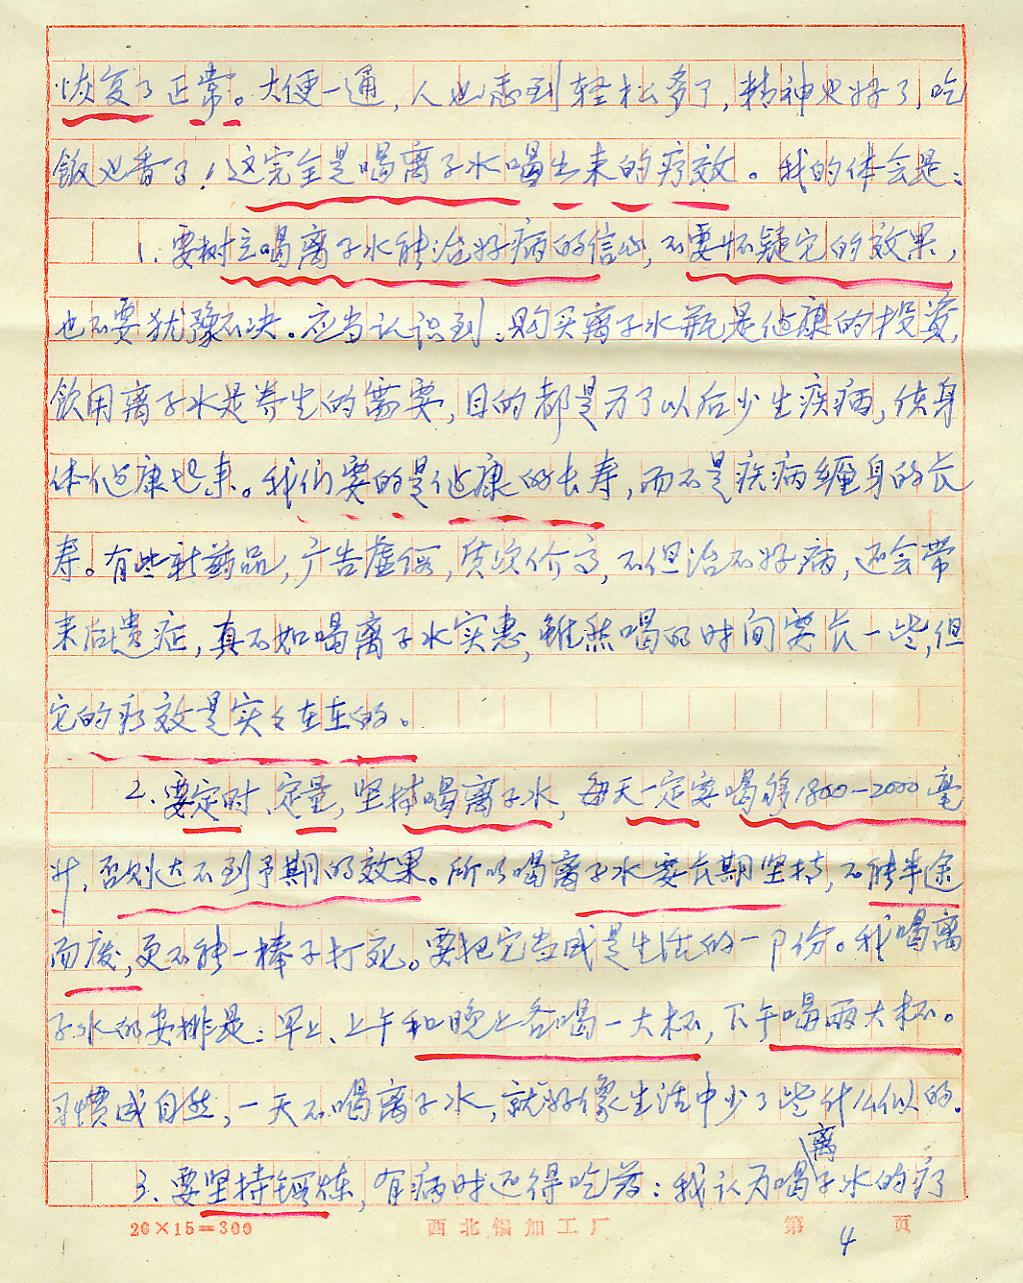 恢复了正常。大便一通，人也感到轻松多了，精神也好了，吃
饭也香了！这完全是喝离子水喝出来的疗效。我的体会是：
1.要树立喝离子水能治好病的信心，不要怀疑它的效果，
也不要犹豫不决。应当认识到：购买离子水瓶是健康的投资，
飲用离子水是养生的需要，目的都是为了以后少生疾病，使身
体健康起来。我们要的是健康的长寿，而不是疾病缠身的长
寿。有些新药品，广告虚假，质次价高，不但治不好病，还会带
来后遗症，真不如喝离子水实惠，虽然喝的时间要长一些，但
它的疗效是实々在在的。
2.要定时、定量，坚持喝离子水，每天一定要喝够1800-2000毫
升，否则达不到予期的效果。所以喝离子水要长期坚持，不能半途
而废，更不能一棒子打死。要把它当成是生活的一部份。我喝离
子水的安排是：早上、上午和晚上各喝一大杯，下午喝两大杯。
习惯成自然，一天不喝离子水，就好像生活中少了些什么似的。
3.要坚持锻炼，有病时还得吃药：我认为喝离子水的疗
20×15=300 西北锅加工厂 第4页